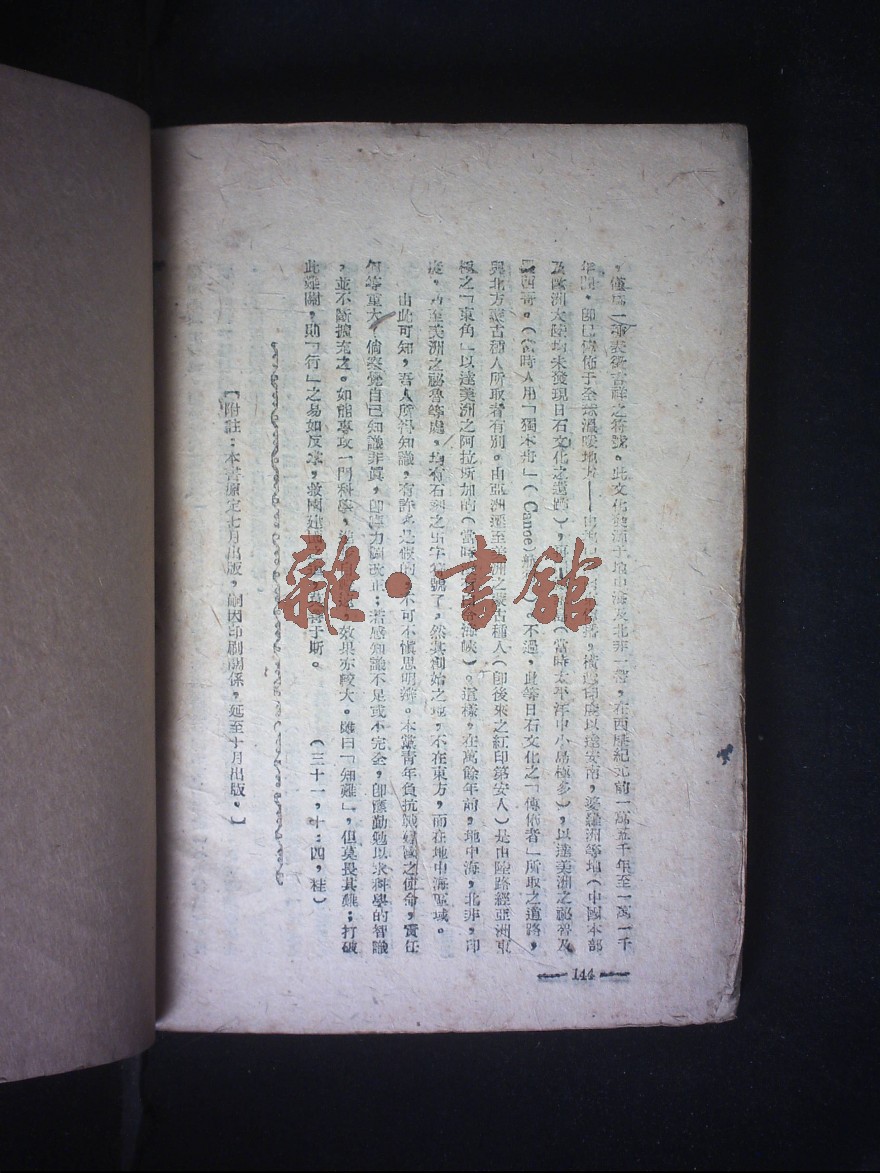 ，僅爲一種表徵吉祥之符號。此文化發源于地中海及北非一帶，在西歷紀元前一萬五千年至一萬一千
年間，即已傳佈于全球溫暖地方——由地中海 橫過印度以達安南，婆羅洲等地（中國本部
及歐洲大陸均未發現日石文化之遺跡），（當時太平洋中小島極多），以達美洲之祕魯及
西哥。（當時人用「獨木舟」（Canoe） 不過，此等日石文化之「傳佈者」所取之道路，
與北方蒙古種人所取者有別。由亞洲遷至美洲之蒙古種人（即後來之紅印第安人）是由陸路經亞洲東
極之「東角」以達美洲之阿拉斯加的（當時 海峽）。這樣，在萬餘年前，地中海，北非，印
度，乃至美洲之祕魯等處，均有石刻之卐字符號了，然其創始之地，不在東方，而在地中海區域。
由此可知，吾人所得知識，有許多是假的，不可不愼思明辨。本黨青年負抗戰建國之使命，責任
何等重大，倘察覺自己知識非眞，卽應力圖改正；若感知識不足或不完全，卽應勤勉以求科學的智識
，並不斷擴充之。如能專攻一門科學， 效果亦較大。雖曰「知難」，但莫畏其難；打破
此難關，則「行」之易如反掌，救國建國， 于斯。　（三十一，十，四，桂）
【附註：本書原定七月出版，嗣因印刷關係，延至十月出版。】
144
雜·書館